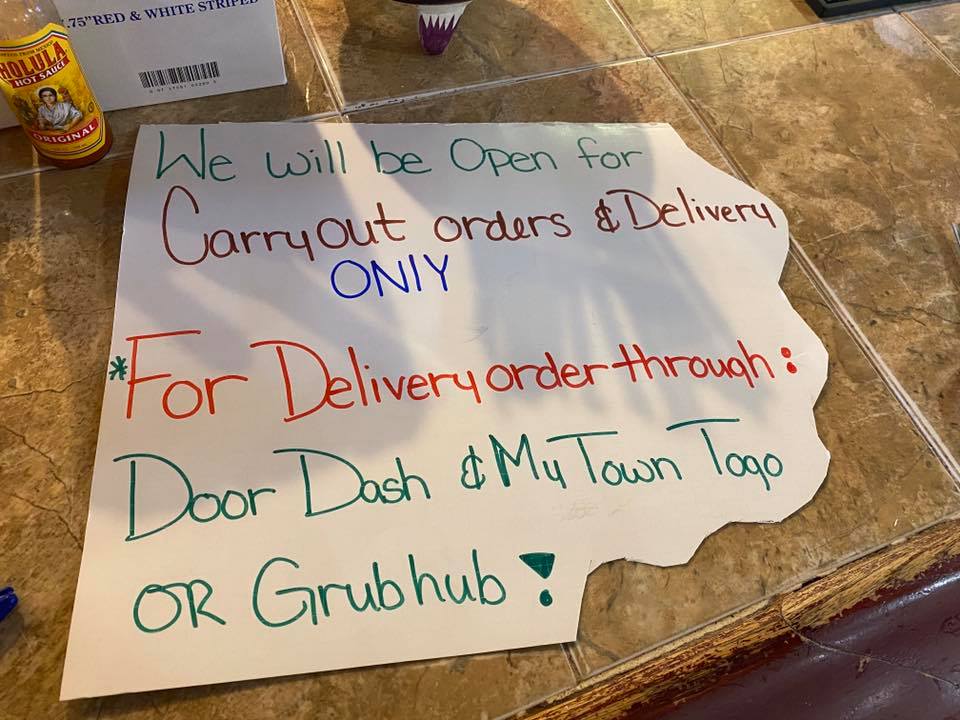 .75"RED & WHITE STRIPED
HOLULA
HOT SAUCE
ORIGINAL
We will be Open for
Carryout orders & Delivery
ONlY
*For Delivery order through:
Door Dash & My Town Togo
OR Grubhub!